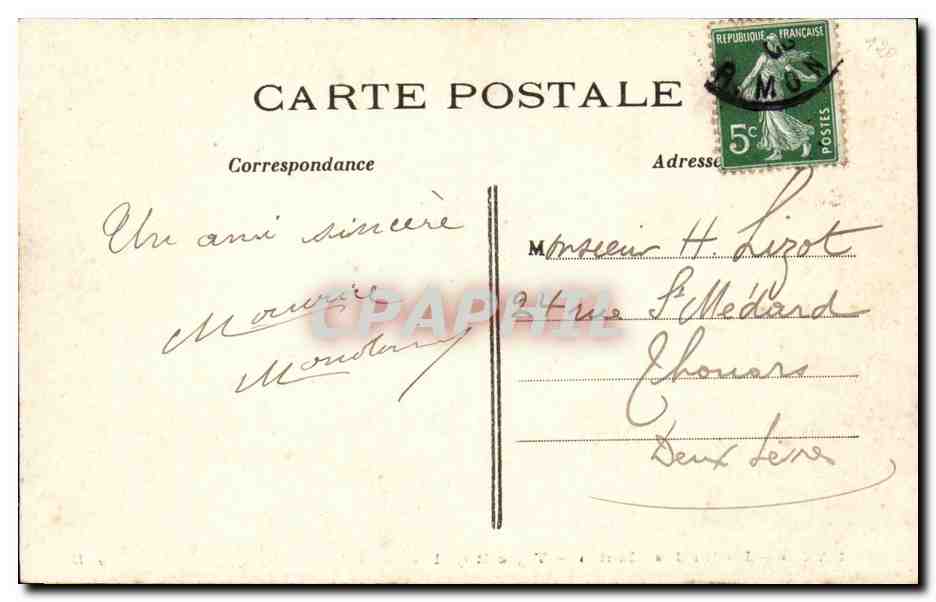 CARTE POSTALE
RÉPUBLIQUE FRANÇAISE
POSTES
5c
MON
120
Correspondance
Adresse
Un ami sincère
Maurice
Monsieur H. Lizot
24 rue St Médard
Thouars
Deux Sèvres
CPAPHIL